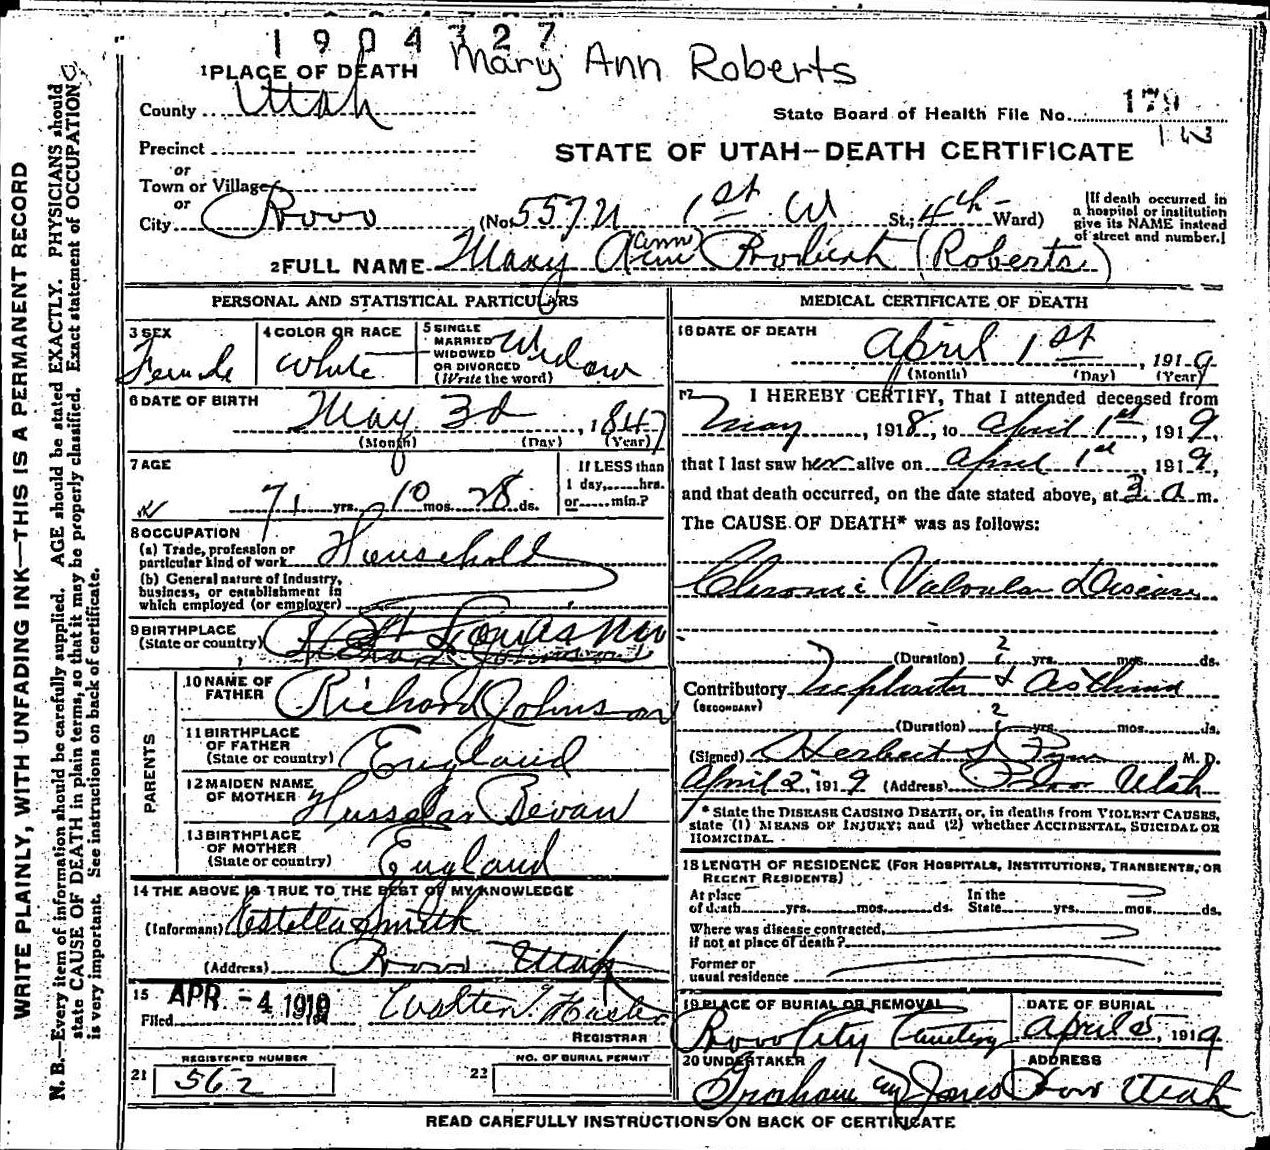 1904327
Mary Ann Roberts
1 PLACE OF DEATH
County Utah
State Board of Health File No. 179
Precinct
STATE OF UTAH—DEATH CERTIFICATE
or
Town or Village
or
City Provo (No. 557 N 1st W St.; 4th Ward)
[If death occurred in
a hospital or institution
give its NAME instead
of street and number.]
2 FULL NAME Mary Ann (Roberts)
PERSONAL AND STATISTICAL PARTICULARS
3 SEX
Female
4 COLOR OR RACE
White
5 SINGLE
MARRIED
WIDOWED
OR DIVORCED
(Write the word)
Widow
6 DATE OF BIRTH
May 3d, 1847
(Month) (Day) (Year)
7 AGE
71 yrs. 10 mos. 28 ds.
If LESS than
1 day,......hrs.
or......min.?
8 OCCUPATION
(a) Trade, profession or
particular kind of work Household
(b) General nature of Industry,
business, or establishment in
which employed (or employer)
9 BIRTHPLACE
(State or country) St Louis Mo
PARENTS
10 NAME OF
FATHER Richard Johnson
11 BIRTHPLACE
OF FATHER
(State or country) England
12 MAIDEN NAME
OF MOTHER Bevan
13 BIRTHPLACE
OF MOTHER
(State or country) England
14 THE ABOVE IS TRUE TO THE BEST OF MY KNOWLEDGE
(Informant) Estella Smith
(Address) Provo Utah
15
Filed APR -4 1919 Walter T. Hasler
REGISTRAR
REGISTERED NUMBER
21 562
NO. OF BURIAL PERMIT
22
MEDICAL CERTIFICATE OF DEATH
16 DATE OF DEATH
April 1st, 1919
(Month) (Day) (Year)
17 I HEREBY CERTIFY, That I attended deceased from
May, 1918, to April 1st, 1919,
that I last saw her alive on April 1st, 1919,
and that death occurred, on the date stated above, at 3 a m.
The CAUSE OF DEATH* was as follows:
Chronic Valvular Disease
(Duration) 2 yrs. mos. ds.
Contributory Nephritis & Asthma
(SECONDARY)
(Duration) 2 yrs. mos. ds.
(Signed) Herbert S Pyne M. D.
April 2, 1919 (Address) Provo Utah
* State the DISEASE CAUSING DEATH, or, in deaths from VIOLENT CAUSES,
state (1) MEANS OF INJURY; and (2) whether ACCIDENTAL, SUICIDAL OR
HOMICIDAL.
18 LENGTH OF RESIDENCE (FOR HOSPITALS, INSTITUTIONS, TRANSIENTS, OR
RECENT RESIDENTS)
At place
of death......yrs.......mos.......ds.
In the
State......yrs.......mos.......ds.
Where was disease contracted,
if not at place of death?
Former or
usual residence
19 PLACE OF BURIAL OR REMOVAL
Provo City Cemetery
DATE OF BURIAL
April 5, 1919
20 UNDERTAKER
Jones
ADDRESS
Provo Utah
READ CAREFULLY INSTRUCTIONS ON BACK OF CERTIFICATE
WRITE PLAINLY, WITH UNFADING INK—THIS IS A PERMANENT RECORD
N. B.—Every item of information should be carefully supplied. AGE should be stated EXACTLY. PHYSICIANS should
state CAUSE OF DEATH in plain terms, so that it may be properly classified. Exact statement of OCCUPATION
is very important. See instructions on back of certificate.